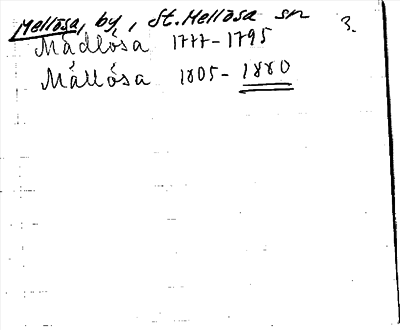 Mellösa, by, St. Mellösa sn 3.
Mådlösa 1777-1795
Mållósa 1805-1880